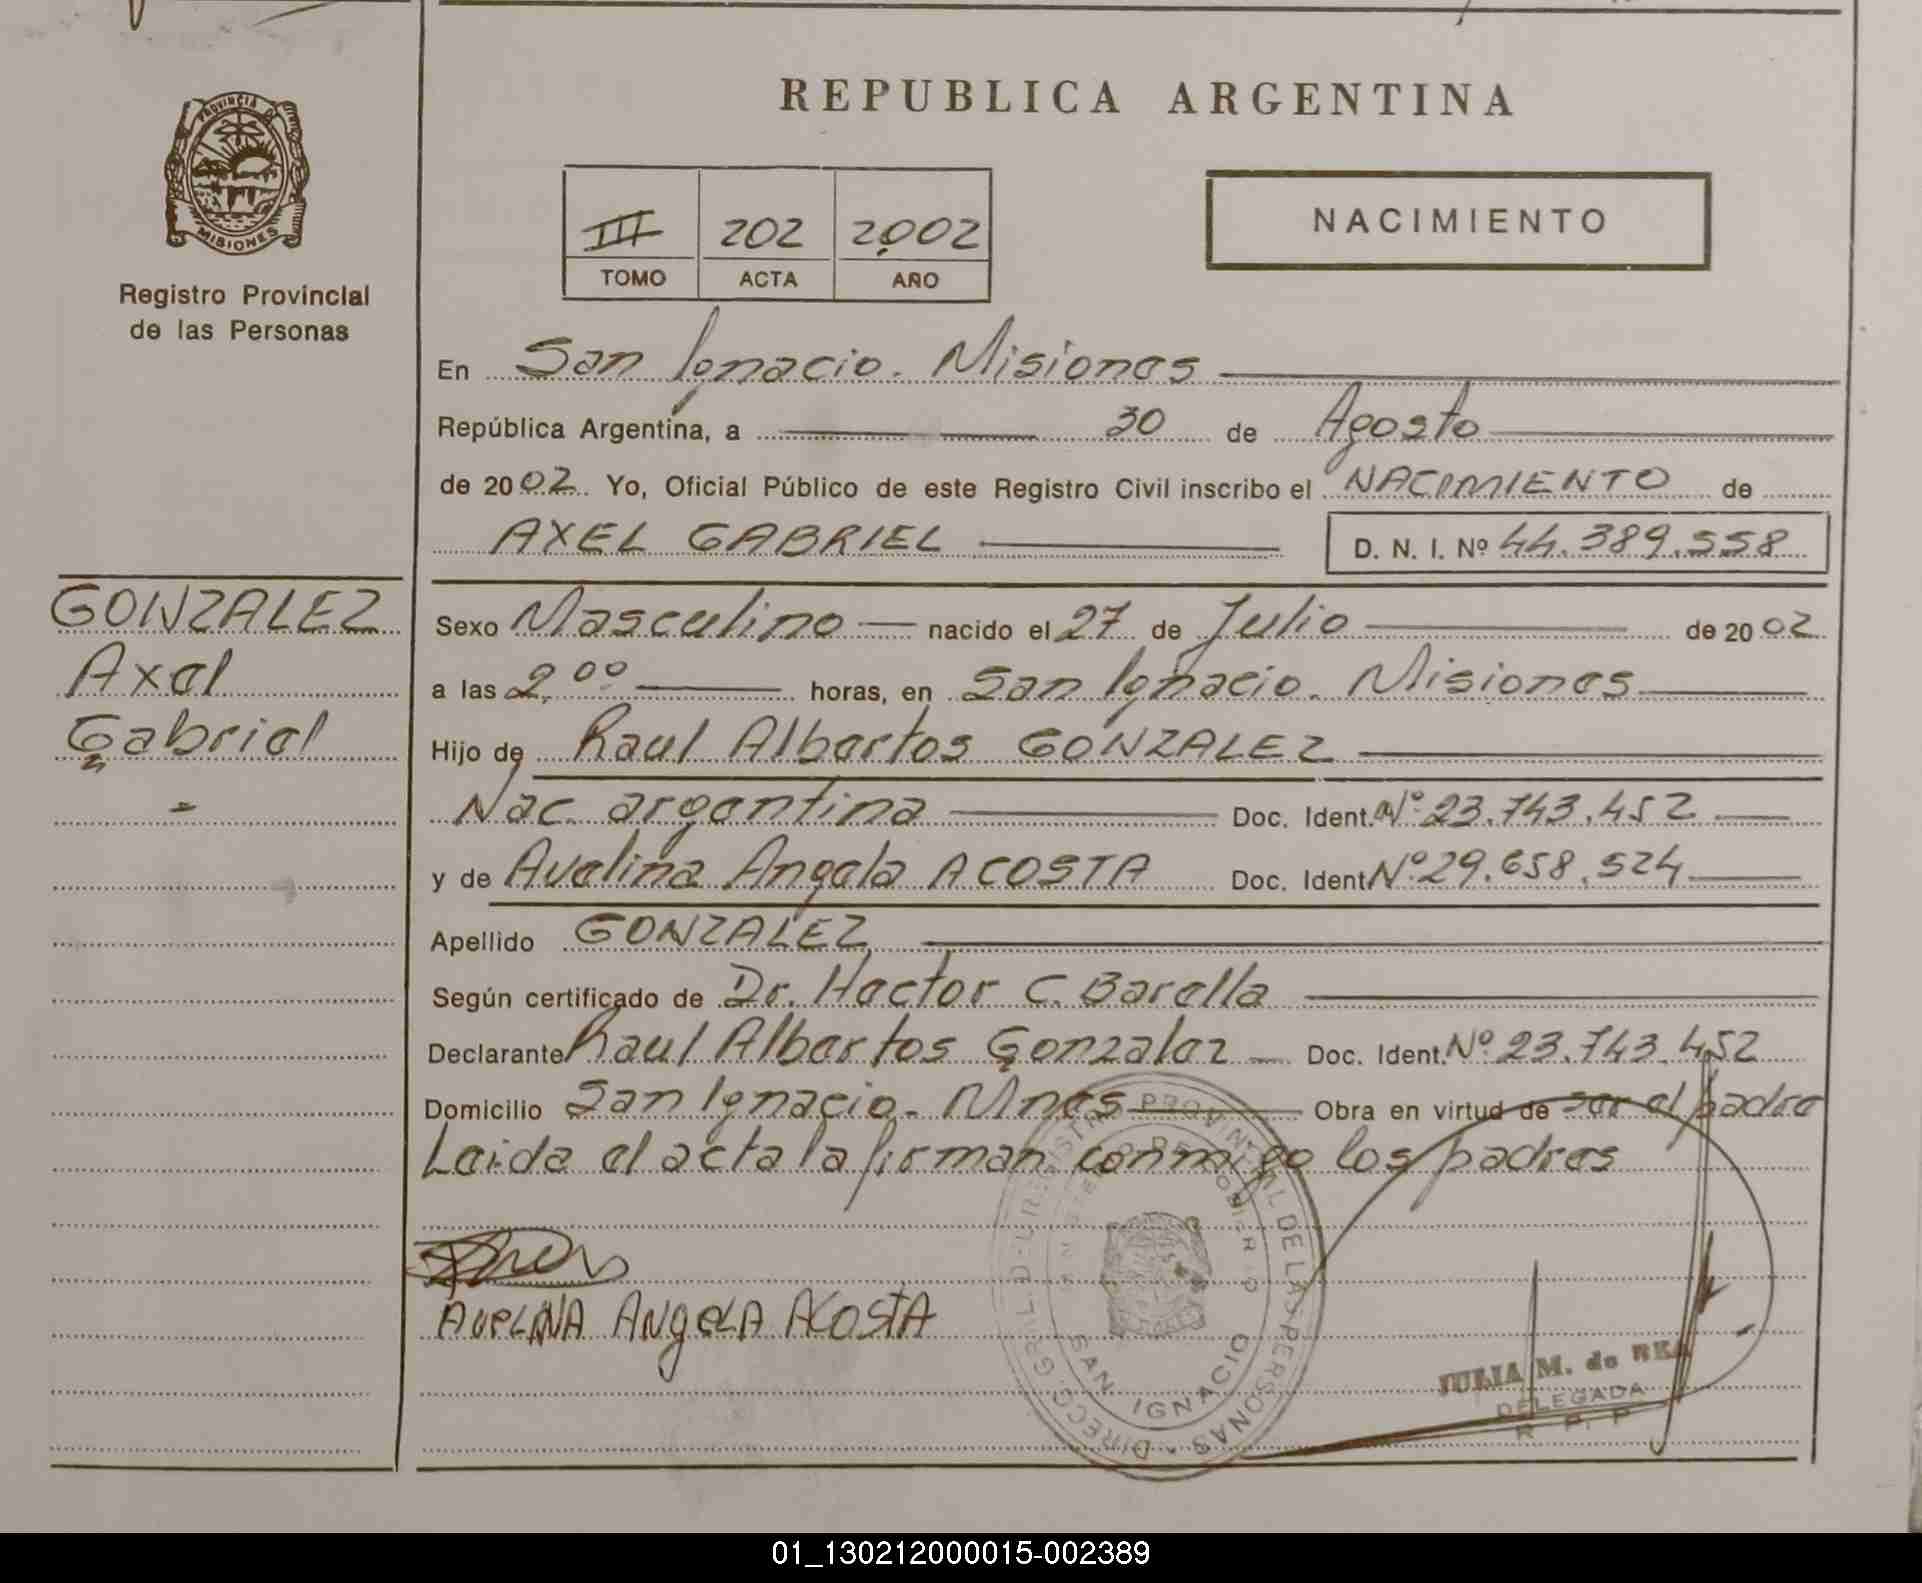 REPUBLICA ARGENTINA
PROVINCIA DE
MISIONES
Registro Provincial
de las Personas
III 202 2002
TOMO ACTA AÑO
NACIMIENTO
En San Ignacio. Misiones
República Argentina, a 30 de Agosto
de 2002 Yo, Oficial Público de este Registro Civil inscribo el NACIMIENTO de
AXEL GABRIEL D. N. I. Nº 44.389.558
GONZALEZ
Axel
Gabriel
Sexo Masculino nacido el 27 de Julio de 2002
a las 2,00 horas, en San Ignacio. Misiones
Hijo de Raul Albertos GONZALEZ
Nac. argentina Doc. Ident. Nº 23.743.452
y de Avelina Angela ACOSTA Doc. Ident. Nº 29.658.524
Apellido GONZALEZ
Según certificado de Dr. Hector C. Barella
Declarante Raul Albertos Gonzalez Doc. Ident. Nº 23.743.452
Domicilio San Ignacio. Mnes Obra en virtud de ser el padre
Leida el acta la firman conmigo los padres
AVELINA ANgELA ACOSTA
DIRECC. GRAL. DEL REGISTRO PROVINCIAL DE LAS PERSONAS
MINISTERIO DE GOBIERNO
SAN IGNACIO
JULIA M. de REA
DELEGADA
R. P. P.
01_130212000015-002389